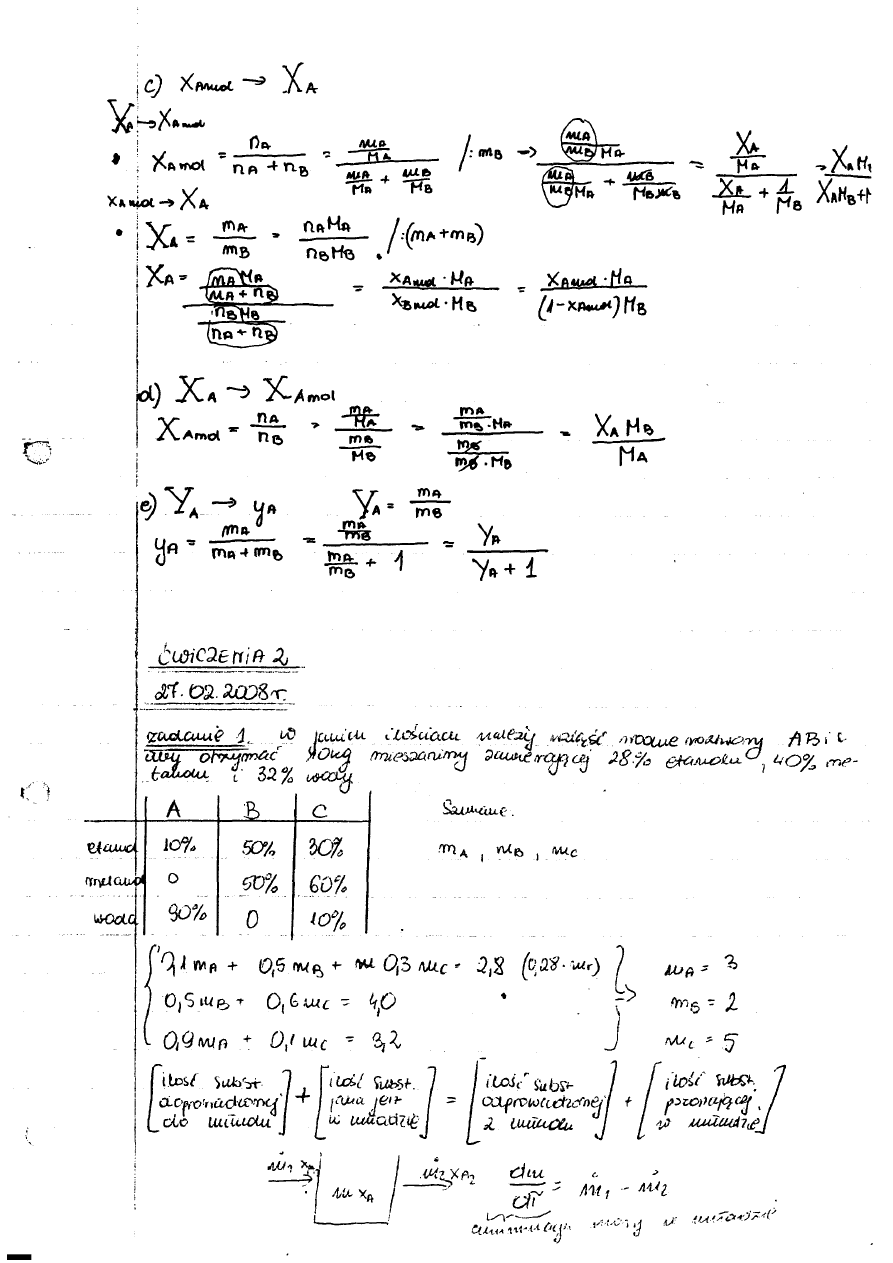 c) xAmol → XA
XA → xAmol
• xAmol = nA / (nA + nB) = (mA/MA) / (mA/MA + mB/MB) /: mB → (mA/(mB MA)) / (mA/(mB MA) + mB/(MB mB)) = (XA/MA) / (XA/MA + 1/MB) →
xAmol → XA
• XA = mA/mB = nAMA / nBMB /:(mA+mB)
XA = (nAMA/(nA + nB)) / (nBMB/(nA + nB)) = xAmol · MA / xBmol · MB = xAmol · MA / (1-xAmol)MB
d) XA → XAmol
XAmol = nA/nB = (mA/MA) / (mB/MB) = (mA/(mB · MA)) / (mB/(mB · MB)) = XA MB / MA
e) YA → yA YA = mA/mB
yA = mA / (mA + mB) = (mA/mB) / (mA/mB + 1) = YA / (YA + 1)
ĆWICZENIA 2
27.02.2008r.
zadanie 1. w jakich ilościach należy wziąść wodne roztwory A B i C
aby otrzymać 10kg mieszaniny zawierającej 28% etanolu, 40% me-
tanolu i 32% wody
A B C Szukane.
etanol 10% 50% 30% mA, mB, mC
metanol 0 50% 60%
woda 90% 0 10%
0,1 mA + 0,5 mB + 0,3 mC = 2,8 (0,28 · mr) mA = 3
0,5 mB + 0,6 mC = 4,0 => mB = 2
0,9 mA + 0,1 mC = 3,2 mC = 5
[ilość subst. doprowadzonej do układu] + [ilość subst. jaka jest w układzie] = [ilość subst. odprowadzonej z układu] + [ilość subst. pozostającej w układzie]
ṁ1 xA1 m xA ṁ2 xA2 dm/dτ = ṁ1 - ṁ2
akumulacja masy w układzie